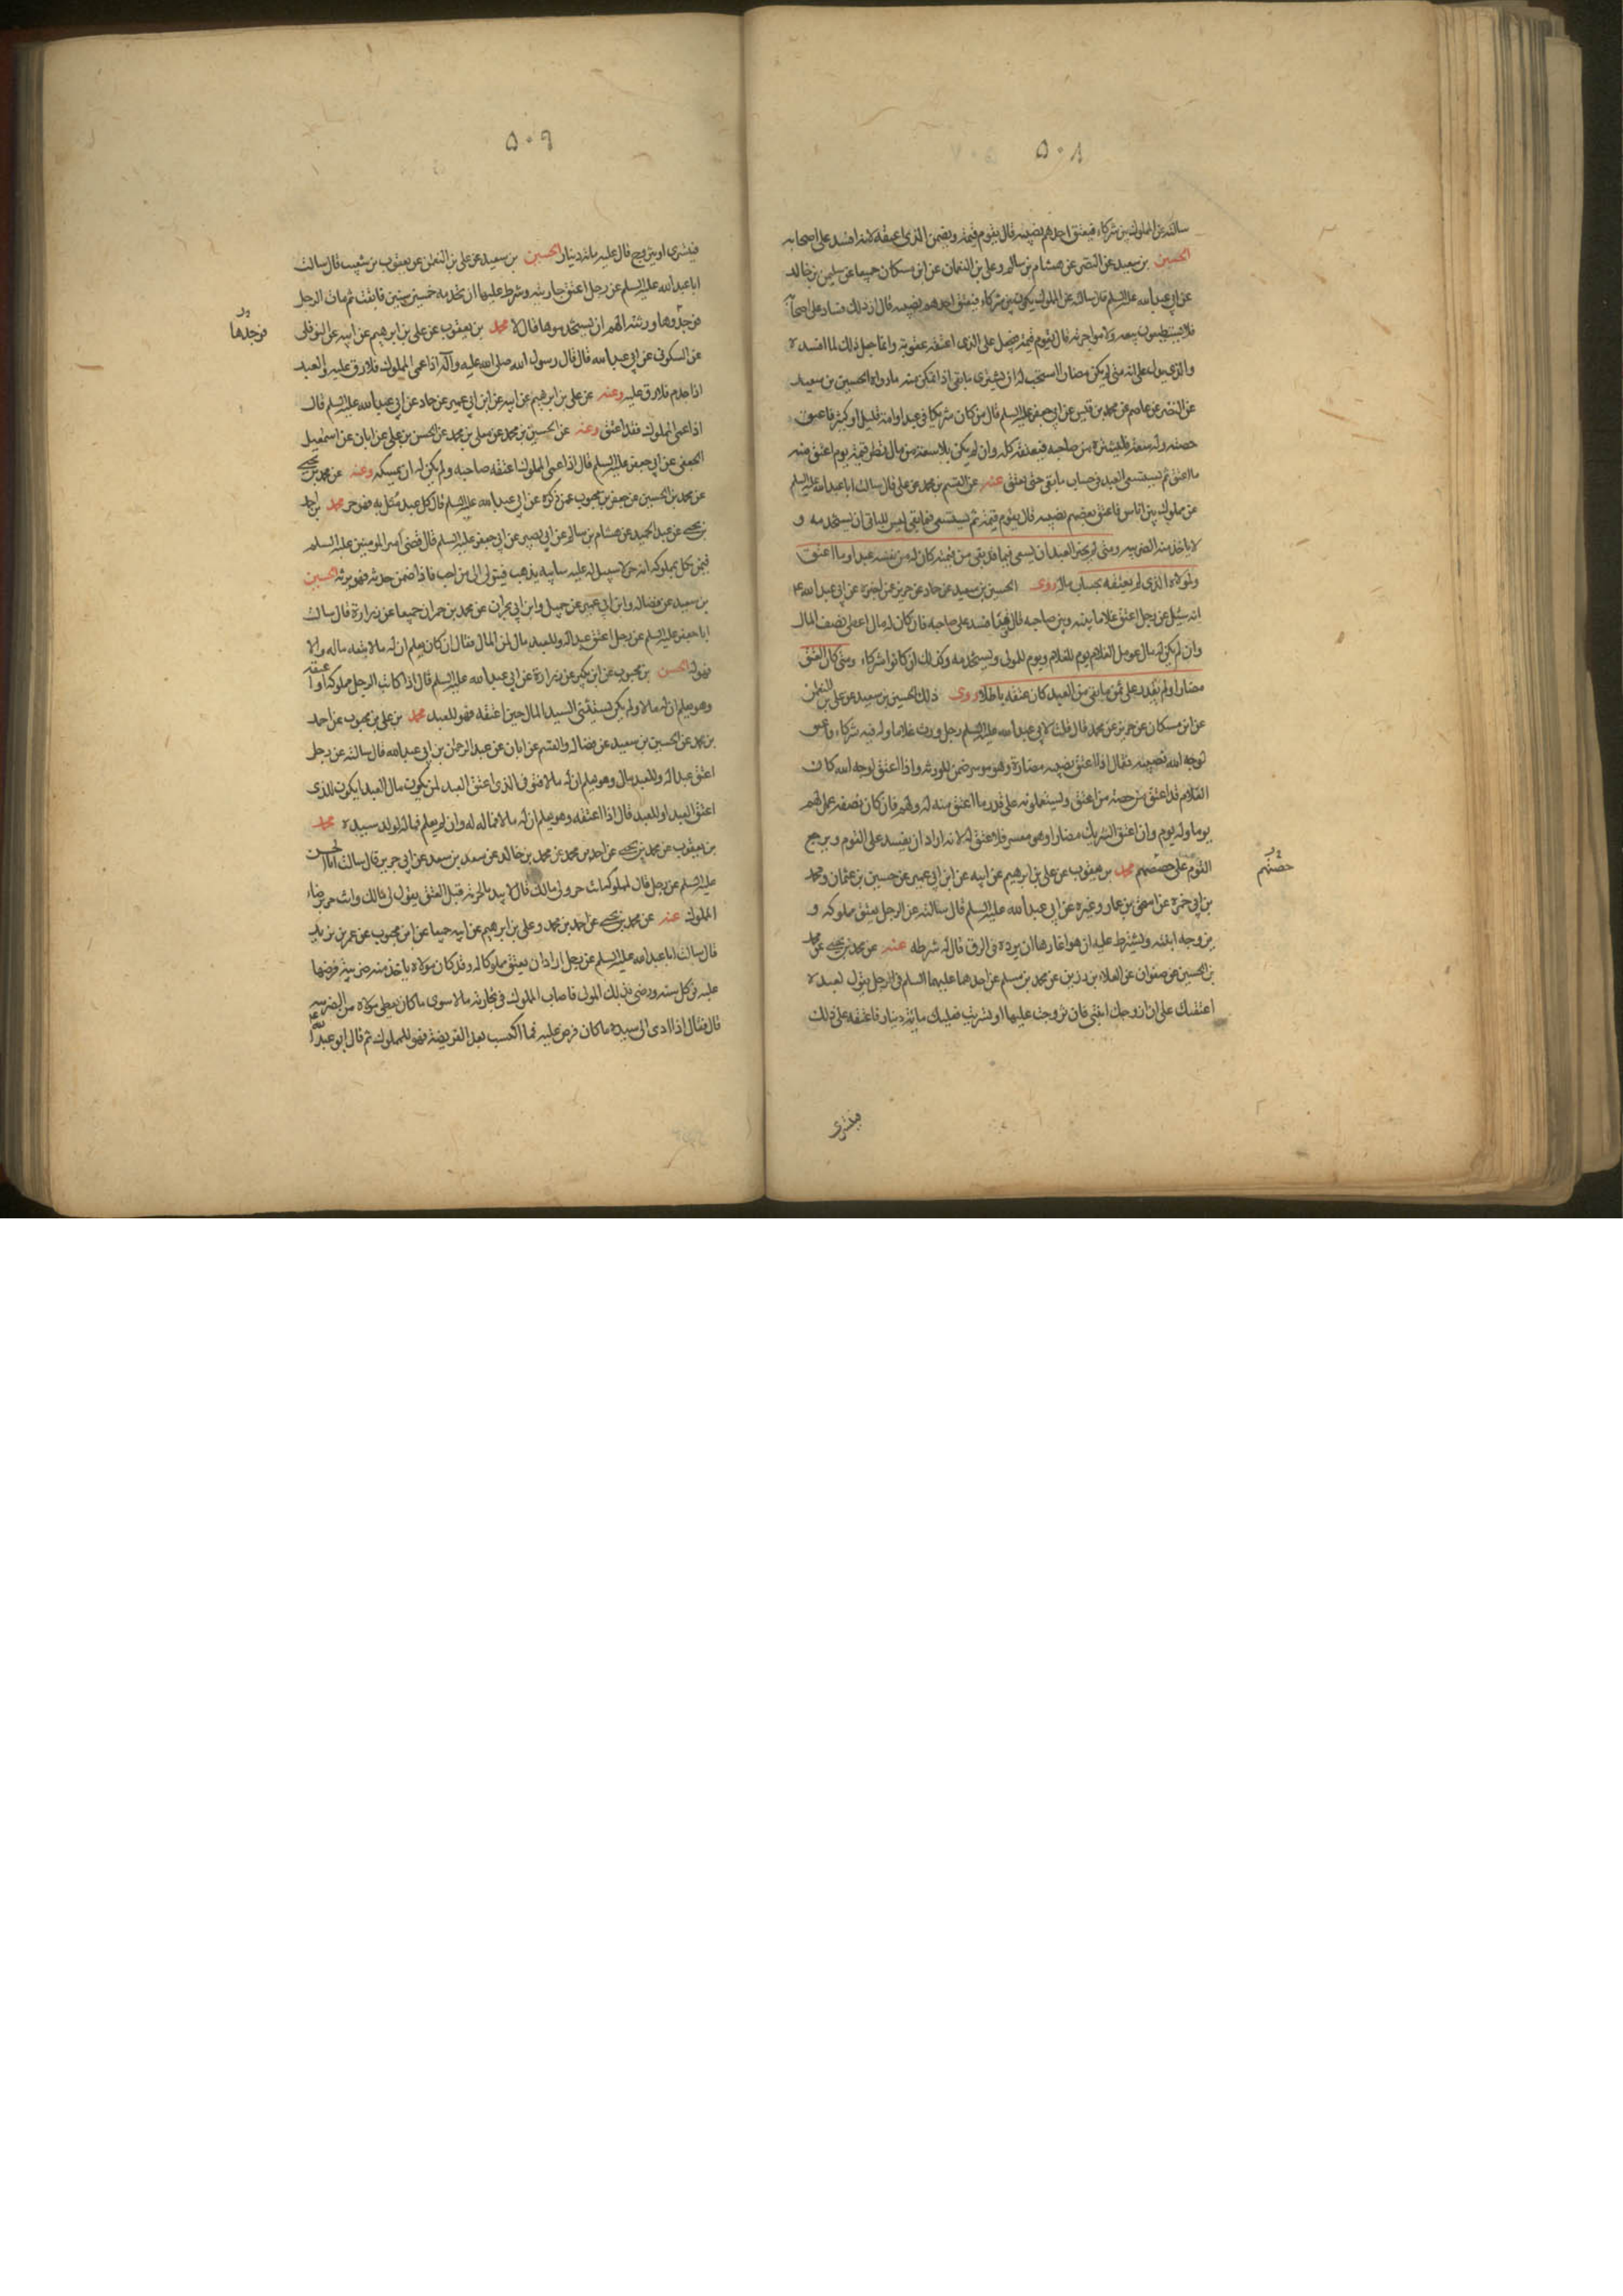 ٥٠٨
سالته عن المملوك بين شركاء فيعتق احدهم نصيبه قال يقوم قيمة ويضمن الذى اعتقه لانه افسد على اصحابه
الحسين بن سعيد عن النضر عن هشام بن سالم وعلى بن النعمان عن ابن مسكان جميعا عن سليمن بن خالد
عن ابى عبد الله عليه السلم قال سالته عن المملوك يكون بين شركاء فيعتق احدهم نصيبه قال ان ذلك فساد على اصحابه
فلا يستطيعون بيعه ولا مواجرته قال يقوم قيمة فيجعل على الذى اعتقه عقوبة وانما جعل ذلك لما افسده
والذى يدل على انه متى لم يكن مضارا استحب له ان يشترى ما بقى اذا تمكن منه ما رواه الحسين بن سعيد
عن النضر عن عاصم عن محمد بن قيس عن ابى جعفر عليه السلم قال من كان شريكا فى عبد او امة قليل او كثير فاعتق
حصته وله سعة فليشتره من صاحبه فيعتقه كله وان لم يكن له سعة من مال نظر قيمته يوم اعتق منه
ما اعتق ثم يستسعى العبد فى حساب ما بقى حتى يعتق عنه عن القسم بن محمد عن على قال سالت ابا عبد الله عليه السلم
عن مملوك بين اناس فاعتق بعضهم نصيبه قال يقوم قيمة ثم يستسعى فيما بقى ليس للباقى ان يستخدمه و
لا ياخذ منه الضريبه ومتى لم يختر العبد ان يسعى فيما قد بقى من قيمته كان له من نفسه بقدر ما اعتق
ولمولاه الذى لم يعتقه بحساب ماله روى الحسين بن سعيد عن حماد عن حريز عمن اخبره عن ابى عبد الله ع
انه سئل عن رجل اعتق غلاما بينه وبين صاحبه قال قد افسد على صاحبه فان كان له مال اعطى نصف المال
وان لم يكن له مال عومل الغلام يوم للغلام ويوم للمولى ويستخدمه وكذلك ان كانوا شركاء ومتى كان المعتق
مضارا ولم يقدر على ثمن ما بقى من العبد كان عتقه باطلا روى ذلك الحسين بن سعيد عن على بن النعمن
عن ابن مسكان عن حريز عن محمد قال قلت لابى عبد الله عليه السلم رجل ورث غلاما وله فيه شركاء فاعتق
لوجه الله نصيبه فقال اذا اعتق نصيبه مضارة وهو موسر ضمن للورثه واذا اعتق لوجه الله كان
الغلام قد اعتق من حصة من اعتق ويستعملونه على قدر ما اعتق منه له ولهم فان كان نصفه عمل لهم
يوما وله يوم وان اعتق الشريك مضارا وهو معسر فلا عتق له لانه اراد ان يفسد على القوم ويرجع
القوم على حصصهم محمد بن يعقوب عن على بن ابرهيم عن ابيه عن ابن ابى عمير عن حسين بن عثمان ومحمد
حصتهم
بن ابى حمزه عن اسحق بن عمار وغيره عن ابى عبد الله عليه السلم قال سالته عن الرجل يعتق مملوكه و
يزوجه ابنته ويشترط عليه ان هو اغارها ان يرده فى الرق قال له شرطه عنه عن محمد بن يحيى عن محمد
بن الحسين عن صفوان عن العلاء بن رزين عن محمد بن مسلم عن احدهما عليهما السلم فى الرجل يقول لعبده
اعتقتك على ان ازوجك ابنتى فان تزوجت عليها او تسريت فعليك مائة دينار فاعتقه على ذلك
فيتسرى
٥٠٩
فيتسرى او يتزوج قال عليه مائه دينار الحسين بن سعيد عن على بن النعمن عن يعقوب بن شعيب قال سالت
ابا عبد الله عليه السلم عن رجل اعتق جاريته وشرط عليها ان تخدمه خمسين سنين فابقت ثم مات الرجل
فوجدوها ورثته الهم ان يستخدموها قال لا محمد بن يعقوب عن على بن ابرهيم عن ابيه عن النوفلى
فوجدها
عن السكونى عن ابى عبد الله قال قال رسول الله صلى الله عليه وآله اذا عمى المملوك فلا رق عليه والعبد
اذا جذم فلا رق عليه وعنه عن على بن ابرهيم عن ابيه عن ابن ابى عمير عن حماد عن ابى عبد الله عليه السلم قال
اذا عمى المملوك فقد اعتق وعنه عن الحسين بن محمد عن معلى بن محمد عن الحسن بن على عن ابان عن اسمعيل
الجعفى عن ابى جعفر عليه السلم قال اذا عمى المملوك اعتقه صاحبه ولم يكن له ان يمسكه وعنه عن محمد بن يحيى
عن محمد بن الحسين عن جعفر بن محبوب عمن ذكره عن ابى عبد الله عليه السلم قال كل عبد مثل به فهو حر محمد بن احمد
بن يحيى عن عبد الحميد عن هشام بن سالم عن ابى بصير عن ابى جعفر عليه السلم قال قضى امير المومنين عليه السلم
فيمن نكل بمملوكه انه حر لا سبيل له عليه سايبه يذهب فيتولى الى من احب فاذا ضمن حدثه فهو يرثه الحسين
بن سعيد عن فضاله وابن ابى عمير عن جميل وابن ابى نجران عن محمد بن حمران جميعا عن زرارة قال سالت
ابا جعفر عليه السلم عن رجل اعتق عبدا له وللعبد مال لمن المال فقال ان كان يعلم ان له مالا تبعه ماله والا
فهو له الحسن بن محبوب عن ابن بكير عن زرارة عن ابى عبد الله عليه السلم قال اذا كاتب الرجل مملوكه او اعتقه
وهو يعلم ان له مالا ولم يكن يستثنى السيد المال حين اعتقه فهو للعبد محمد بن على بن محبوب عن احمد
بن محمد عن الحسين بن سعيد عن فضاله والقسم عن ابان عن عبد الرحمن بن ابى عبد الله قال سالته عن رجل
اعتق عبدا له وللعبد مال وهو يعلم ان له مالا فتوفى الذى اعتق العبد لمن يكون مال العبد ايكون للذى
اعتق العبد او للعبد قال اذا اعتقه وهو يعلم ان له مالا فماله له وان لم يعلم فماله لولد سيده محمد
بن يعقوب عن محمد بن يحيى عن احمد بن محمد عن محمد بن خالد عن سعد بن سعد عن ابى جرير قال سالت ابا الحسن
عليه السلم عن رجل قال لمملوكه انت حر ولى مالك قال لا يبدا بالحريه قبل العتق يقول لى مالك وانت حر برضاء
المملوك عنه عن محمد بن يحيى عن احمد بن محمد وعلى بن ابرهيم عن ابيه جميعا عن ابن محبوب عن عمر بن يزيد
قال سالت ابا عبد الله عليه السلم عن رجل اراد ان يعتق مملوكا له وقد كان مولاه ياخذ منه ضريبة فرضها
عليه فى كل سنه ورضى بذلك المولى فاصاب المملوك فى تجارته مالا سوى ما كان يعطى مولاه من الضريبه
قال فقال اذا ادى الى سيده ما كان فرض عليه فما اكتسب بعد الفريضة فهو للمملوك ثم قال ابو عبد الله